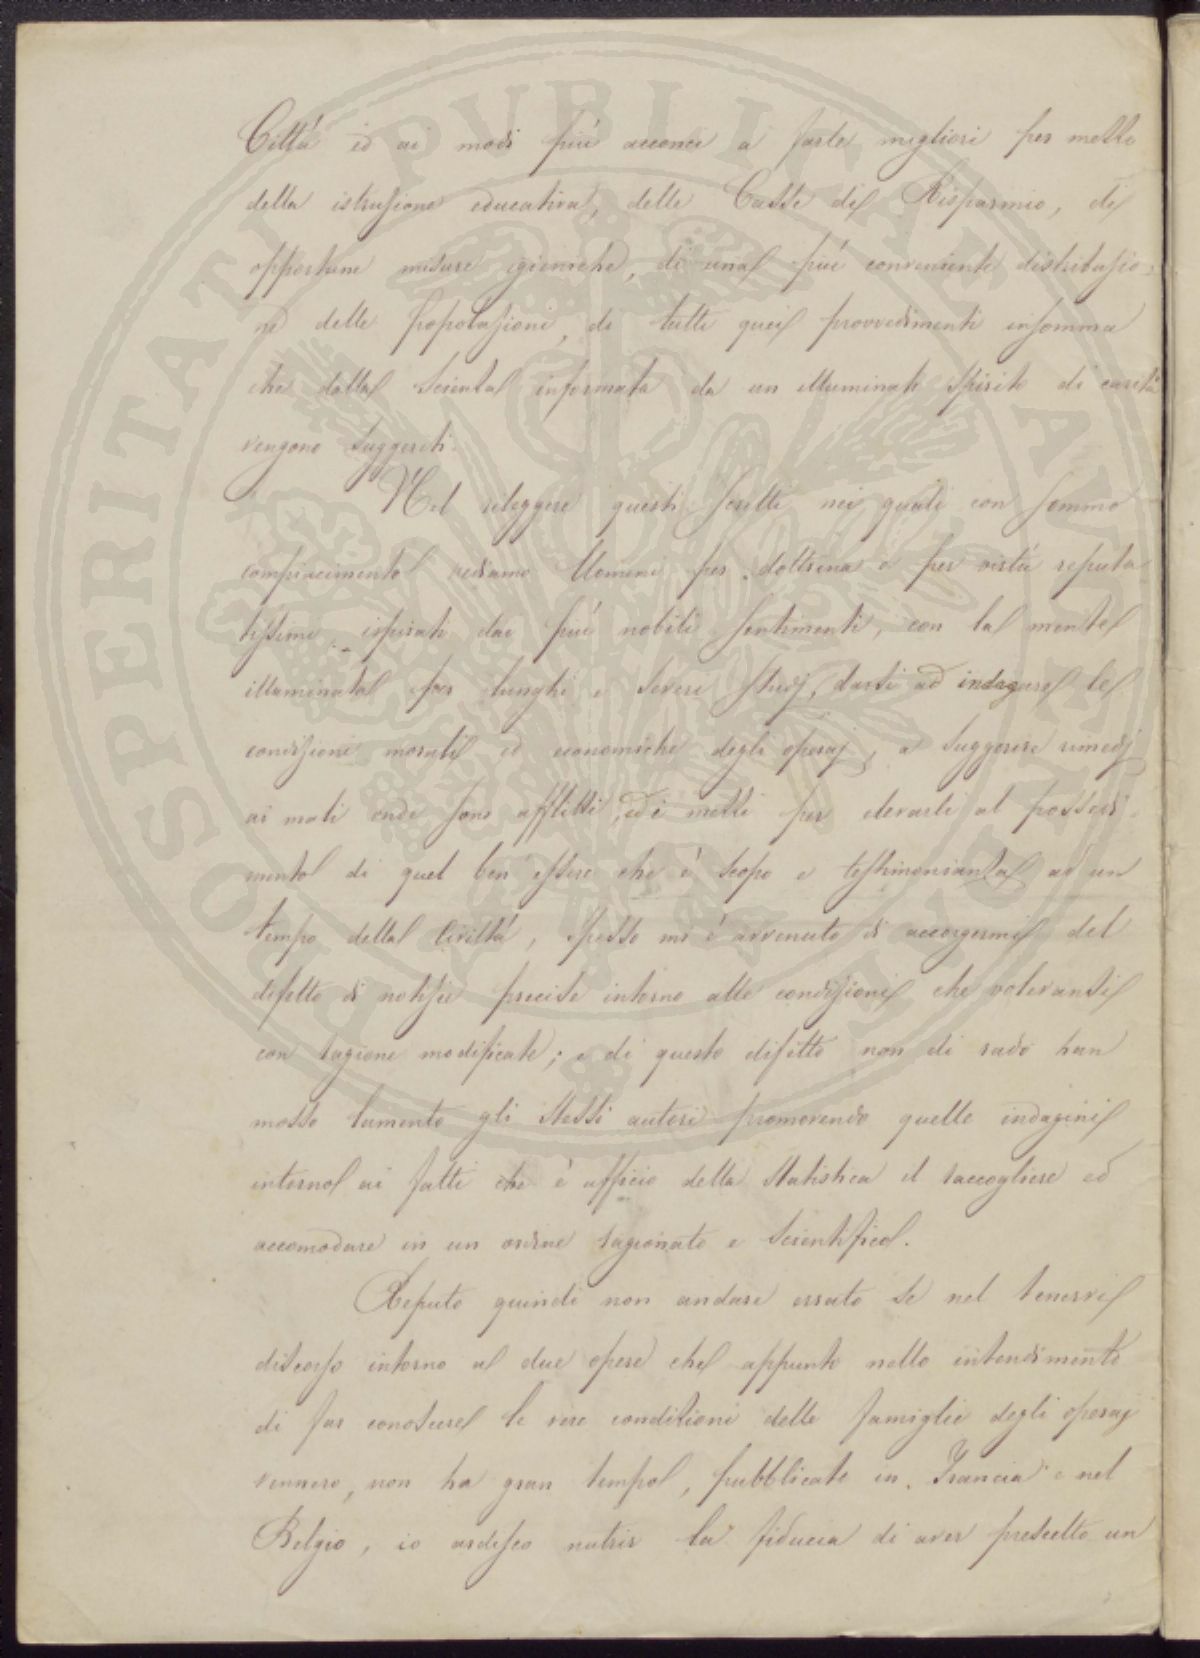 Città ed ai modi più acconci a farle migliori per mezzo
della istruzione educativa, delle Casse di Risparmio, di
opportune misure igieniche, di una più conveniente distribuzio-
ne delle popolazioni, di tutti quei provvedimenti insomma
che dalla scienza informata da un illuminato spirito di carità
vengono suggeriti.
Nel rileggere questi scritti nei quali con sommo
compiacimento vediamo Uomini per dottrina e per virtù reputa
tissimi ispirati dai più nobili sentimenti, con la mente
illuminata per lunghi e severi studj, darsi ad indagare le
condizioni morali ed economiche degli operaj, a suggerire rimedj
ai mali onde sono afflitti, ed i mezzi per elevarli al possedi-
mento di quel ben essere che è scopo e testimonianza ad un
tempo della Civiltà, spesso mi è avvenuto di accorgermi del
difetto di notizie precise intorno alle condizioni che volevansi
con ragione modificate; e di questo difetto non di rado han
mosso lamento gli stessi autori promovendo quelle indagini
intorno ai fatti che è officio della Statistica il raccogliere ed
accomodare in un ordine ragionato e scientifico.
Reputo quindi non andare errato se nel tenervi
discorso intorno a due opere che appunto nello intendimento
di far conoscere le vere condizioni delle famiglie degli operaj
vennero, non ha gran tempo, pubblicate in Francia e nel
Belgio, io ardisco nutrir la fiducia di aver prescelto un
PROSPERITATI PVBLICAE AVGENDAE